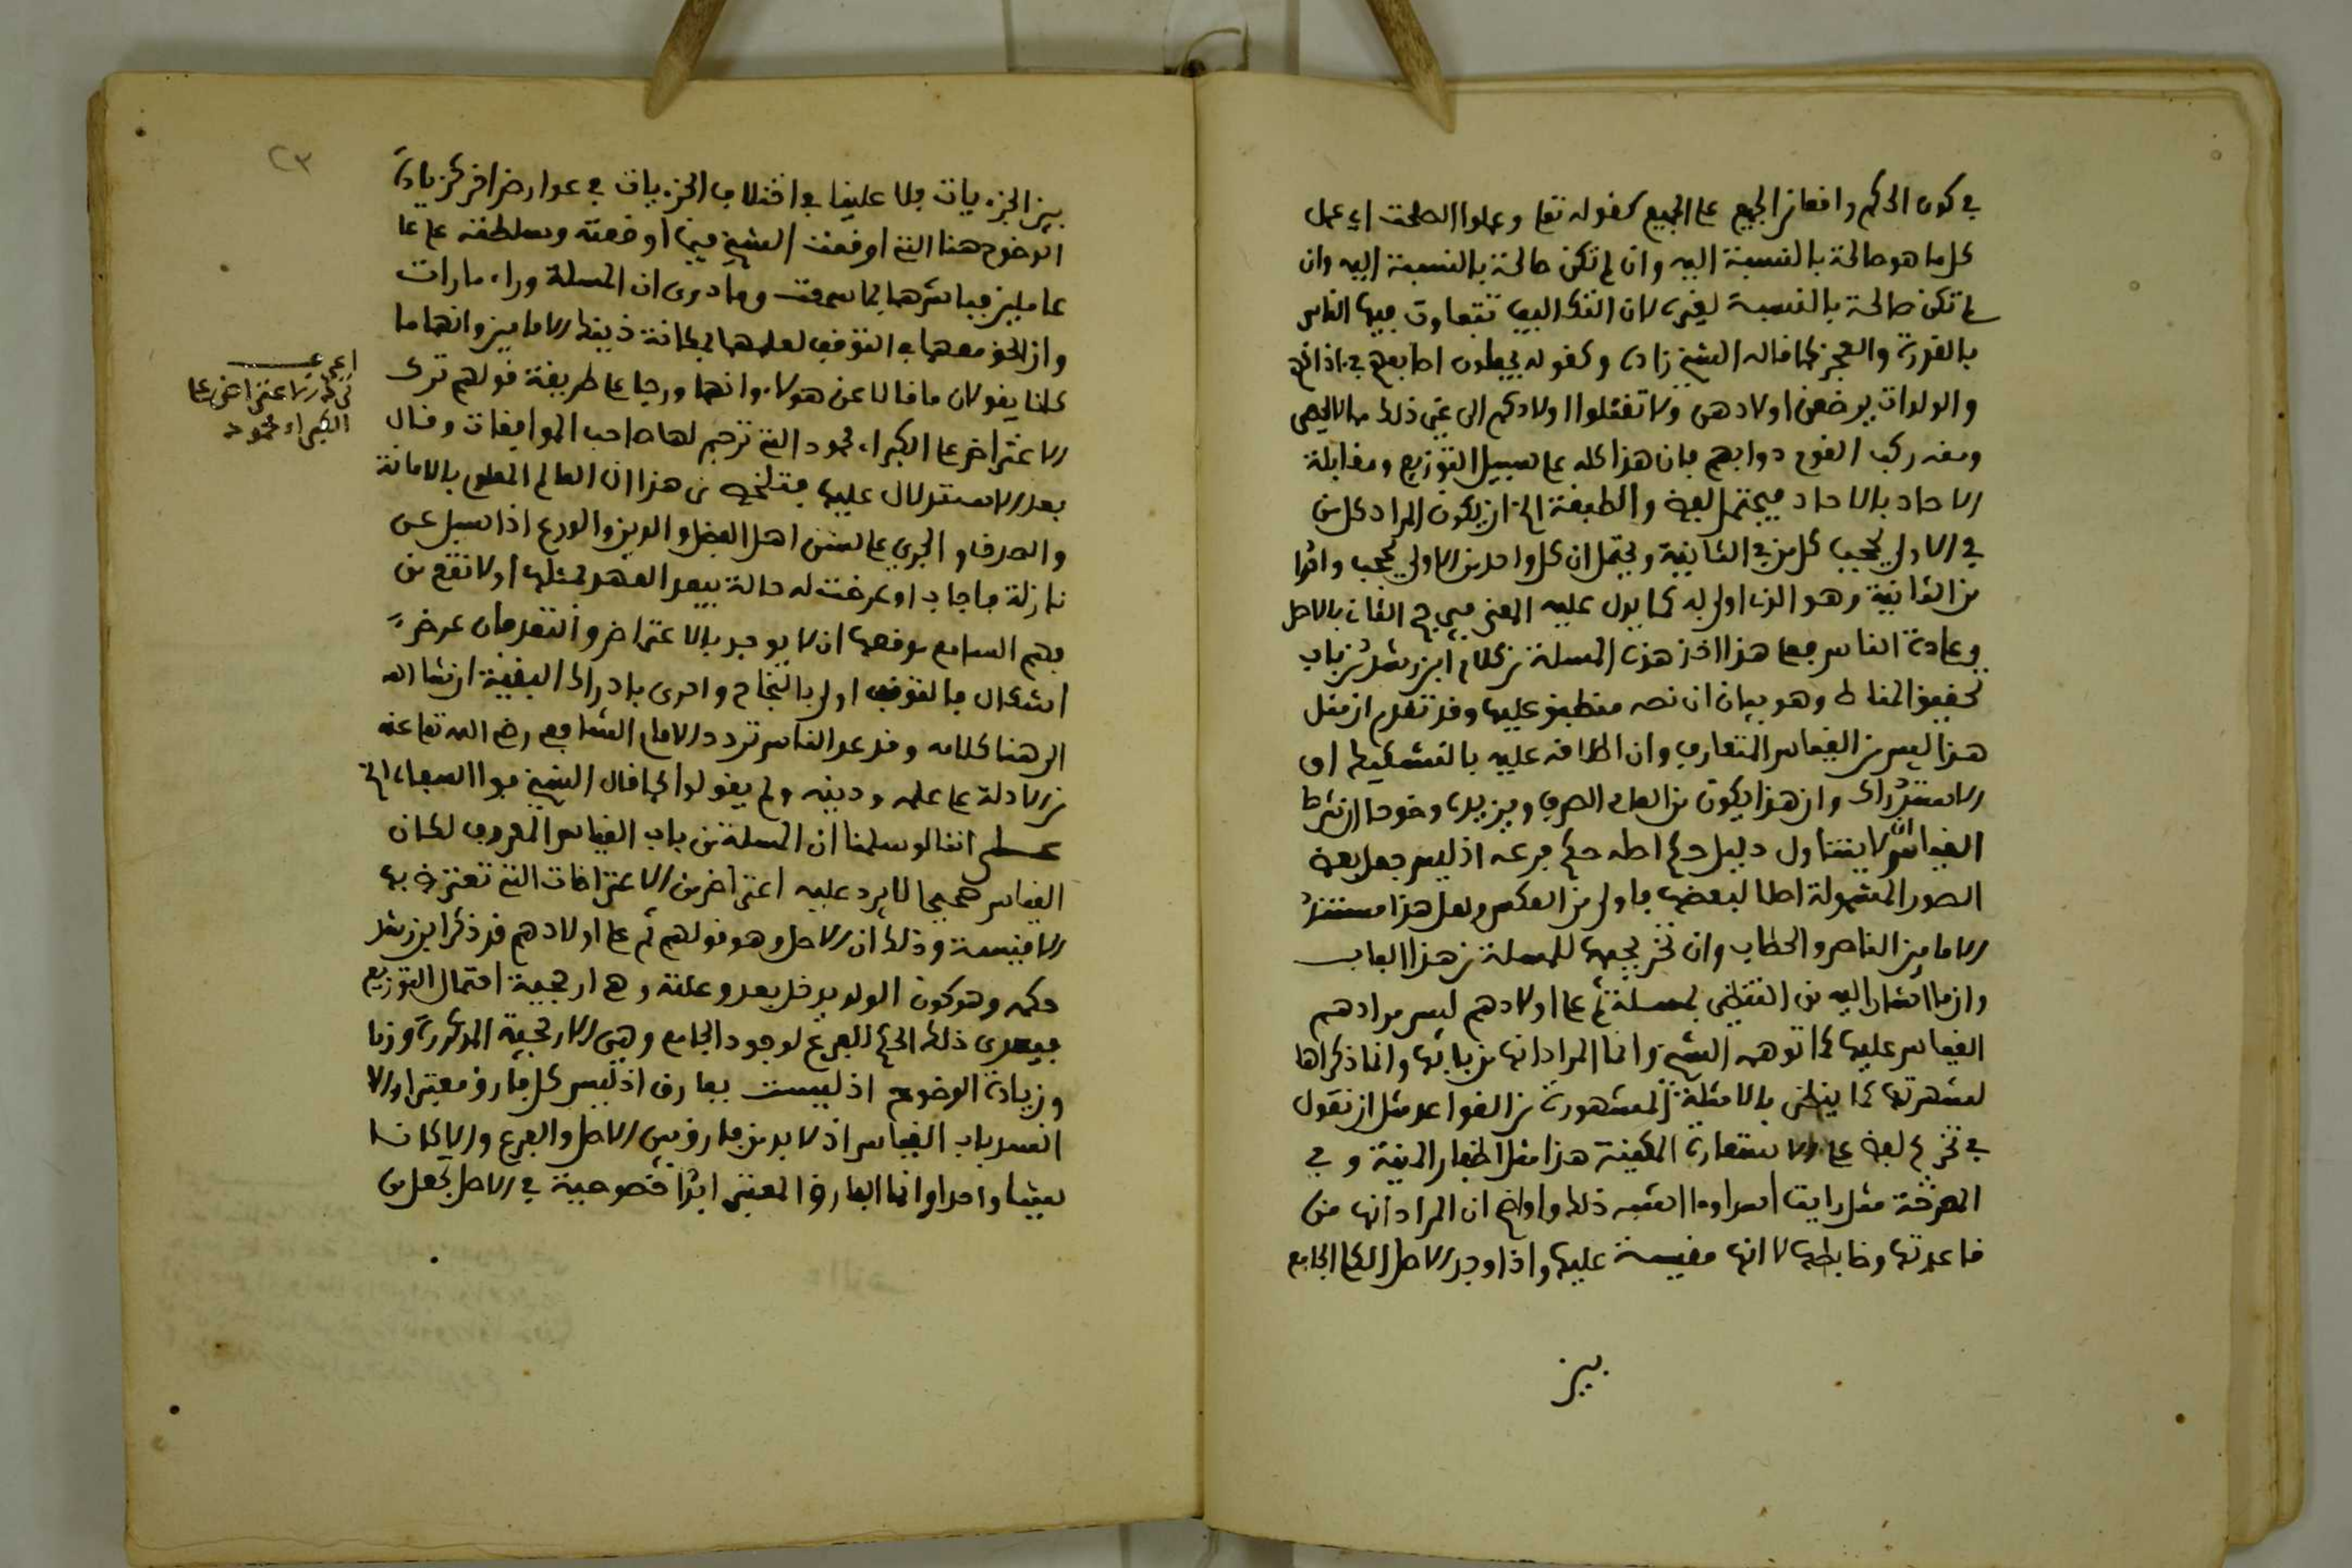 في كون الحكم واقعا من الجميع على الجميع كقوله تعلى وعملوا الصلحت اي عمل
كل ما هو صالحة بالنسبة اليه وان لم تكن صالحة بالنسبة اليه وان
لم تكن صالحة بالنسبة لغيره لان التكاليف تتفاوت فيها الناس
بالقدرة والعجز كما قاله الشيخ زاده وكقوله يجعلون اصابعهم في ءاذانهم
والولدات يرضعن اولادهن ولا تقتلوا اولادكم الى غير ذلك مما لا يحصى
ومنه ركب القوم دوابهم فان هذا كله على سبيل التوزيع ومقابلة
الاحاد بالاحاد فيحتمل لفظ والطبقة الخ ان يكون المراد كل من
في الاولى يحجب كل من في الثانية ويحتمل ان كل واحد من الاولى يحجب واحدا
من الثانية وهو الذي اولى به كما يدل عليه المعنى فيرجح الثاني بالاصل
وعادة الناس فعلى هذا اخذ هذه المسلة من كلام ابن رشد من باب
تحقيق المناط وهو بيان ان نصه منطبق عليها وقد تقدم ان مثل
هذا ليس من القياس المتعارف وان اطلاقه عليه بالتشكيك او
الاستدراك وان هذا يكون من العالم الصرف ويزيده وضوحا ان شرط
القياس ان لا يتناول دليل حكم اصله حكم فرعه اذ ليس جعل بعض
الصور المشمولة اصلا لبعضها باولى من العكس ولعل هذا مستند
الامامين الناصر والحطاب وان تخريجهما للمسلة من هذا الباب
وان ما اشار اليه من التنظير بمسلة ثم على اولادهم ليس مرادهم
القياس عليها كما توهمه الشيخ وانما المراد انها من بابها وانما ذكراها
لشهرتها كما ينظر بالامثلة المشهورة من القواعد مثل ان تقول
في تخريج لفظ على الاستعارة المكنية هذا مثل اظفار المنية وفي
المصرحة مثل رايت اسدا وما اشبه ذلك واوضح ان المراد انها من
قاعدتها وضابطها لا انها مقيسة عليها واذا وجد الاصل الكلي الجامع
بين
٢٣
بين الجزءيات فلا علينا في اختلاف الجزءيات في عوارض اخر كزيادة
الوضوح هنا التي اوقعت الشيخ فيما اوقعته وسلطته على
عاملين فباشرهما بما سمعت وما درى ان المسلة وراء ما رأت
وان الحق معهما في التوقف لعلمهما بمكانة ذينك الامامين وانهما ما
كانا يقولان ما قالا عن هوى وانهما درجا على طريقة قولهم ترك
الاعتراض على الكبراء محمود التي ترجم لها صاحب الموافقات وقال
بعد الاستدلال عليها فتلخص من هذا ان العالم المعلوم بالامانة
والصدق والجري على سنن اهل الفضل والدين والورع اذا سيل عن
نازلة فاجاب او عرضت له حالة يبعد العهد بمثلها او لا تقع من
فهم السامع موقعها ان لا يواجه بالاعتراض والنقد فان عرض
اشكال فالتوقف اولى بالنجاح واحرى بادراك البغية ان شا الله
الى هنا كلامه وقد عد الناس تردد الامام الشافعي رضي الله تعلى عنه
من الادلة على علمه ودينه ولم يقولوا كما قال الشيخ
على اننا لو سلمنا ان المسلة من باب القياس المعروف لكان
القياس صحيحا لا يرد عليه اعتراض من الاعتراضات التي تعترض بها
الاقيسة وذلك ان الاصل وهو قولهم ثم على اولادهم قد ذكر ابن رشد
حكمه وهو كون الولد يدخل بعد وعلته وهي ارجحية احتمال التوزيع
فيعدى ذلك الحكم للفرع لوجود الجامع وهي الارجحية المذكورة وزنا
وزيادة الوضوح اذ ليست بفارق اذ ليس كل فارق معتبرا والا
انسد باب القياس اذ لا بد من فارق بين الاصل والفرع والا لكانا
شيئا واحدا وانما الفارق المعتبر ابدا خصوصية في الاصل تجعل من
اعرف
ترك الاعتراض على
الكبراء محمود